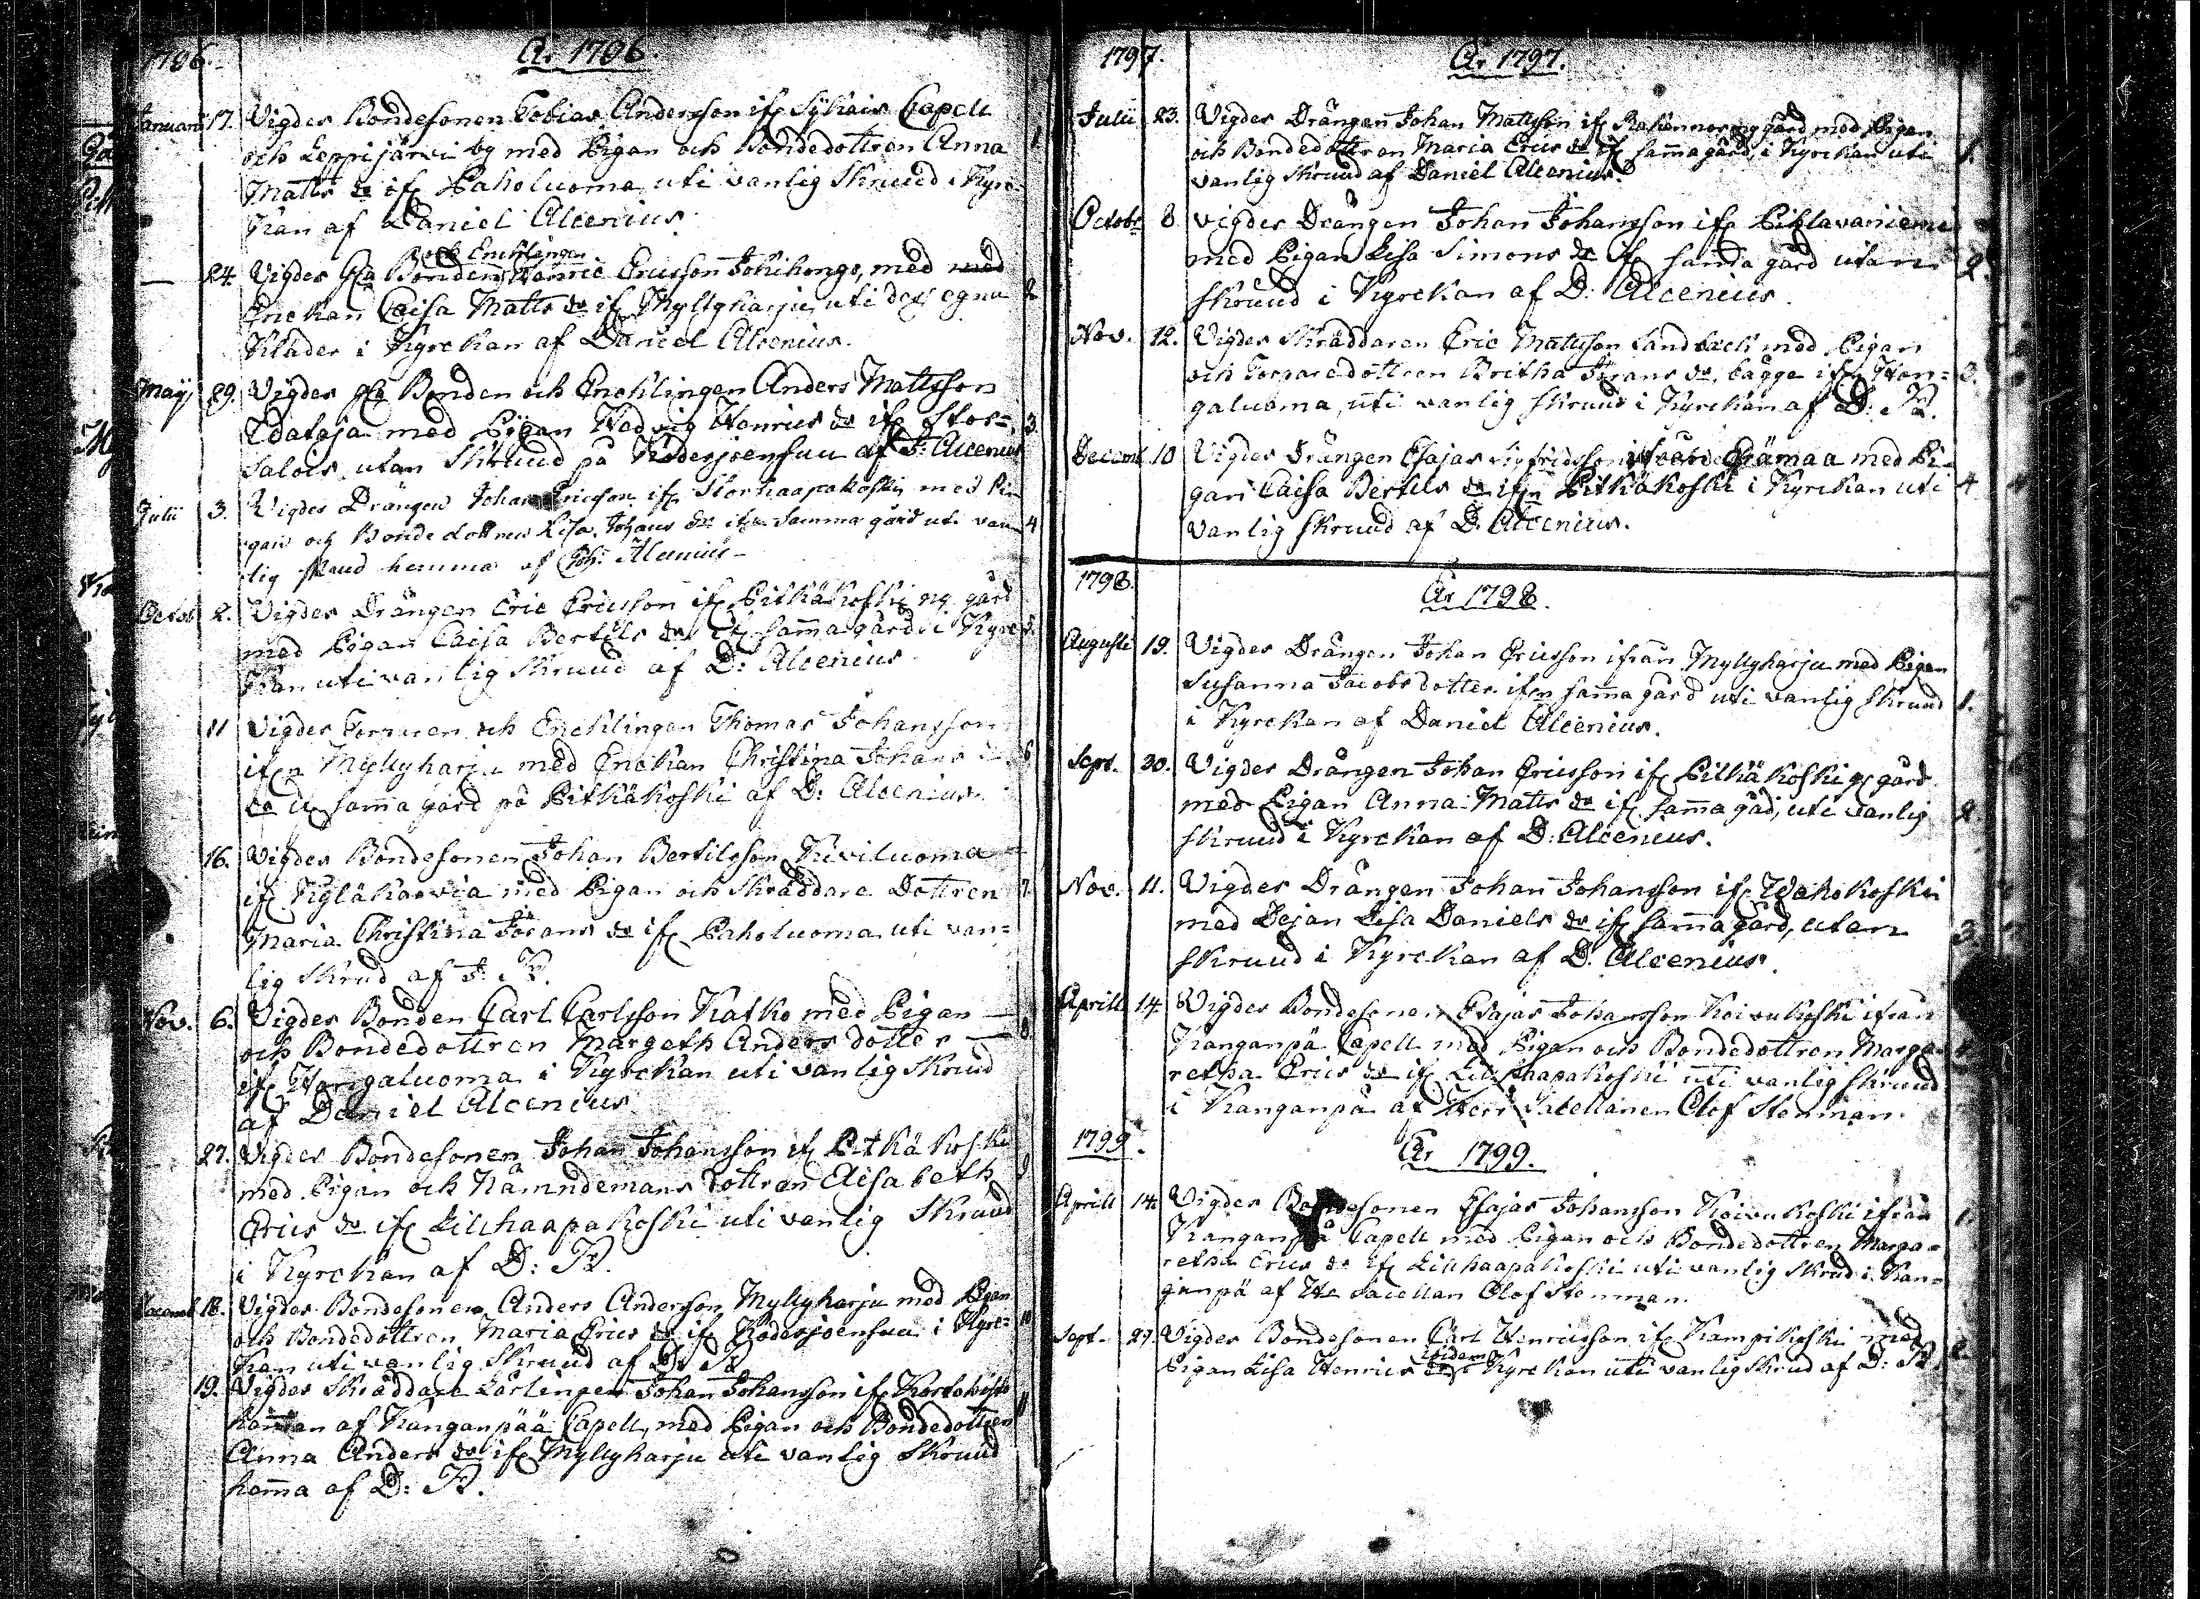 1796.
År 1796.
Januarii 17. Vigdes Bondesonen Tobias Andersson ifr Sykais Capell
och Leppijärvi by med Pigan och Bondedottren Anna 1
Matts dr ifr Paholuoma uti vanlig Skruud i Kyr-
kan af Daniel Alcenius.
och Enchlingen
— 24. Vigdes Bonden Henric Ericsson Jokihongo, med
Enckan Caisa Matts dr ifr Myllyharju uti des egna 2
Kläder i Kyrckan af Daniel Alcenius.
Maij 29. Vigdes Bonden och Enchlingen Anders Mattsson
med Pigan Hedvig Henrics dr ifr Stor- 3.
Salois utan Skruud på Ködesjoensuu af J: Alcenius
Julii 3. Vigdes Drängen Johan Ericson ifr Storhaapakoski med Pi-
gan och Bondedottren Lisa Johans dr ifr samma gård uti van- 4
lig skrud hemma af Joh: Alcenius
Octob 2. Vigdes Drängen Eric Ericsson ifr Pitkäkoski ng gård
med Pigan Caisa Bertils dr ifr samma gård i Kyrc- 5.
kan uti vanlig Skruud af D: Alcenius
11 Vigdes Torparen och Enchlingen Thomas Johansson
ifrn Myllyharju med Enckan Christina Johans 6
dr ifr samma gård på Pitkäkoski af D: Alcenius.
16. Vigdes Bondesonen Johan Bertilsson Kiviluoma
ifr Kyläkarvia med Pigan och Skräddare Dottren 7.
Maria Christina Jörans dr ifr Paholuoma uti van-
lig Skrud af
Nov. 6. Vigdes Bonden Carl Carlsson Katko med Pigan
och Bondedottren Margeth Anders dotter 8
ifr Hongaluoma i Kyrckan uti vanlig Skrud
af Daniel Alcenius
27. Vigdes Bondesonen Johan Johansson ifr Pitkäkoski
med Pigan och Nämndemans Dottren Elisabeth 9
Erics dr ifr Lillhaapakoski uti vanlig Skruud
i Kyrckan af D:
Decemb 18. Vigdes Bondesonen Anders Andersson Myllyharju med Pigan
och Bondedottren Maria Erics dr ifr Ködesjoensuu i Kyrc- 10
kan uti vanlig Skruud af D:
19. Vigdes Skräddare Lärlingen Johan Johansson ifr
af Kanganpää Capell, med Pigan och Bondedottren 11
Anna Anders dr ifr Myllyharju uti vanlig Skruud
hema af D:
1797.
År 1797.
Julii 23. Vigdes Drängen Johan Mattsson ifr gård med Pigan
och Bondedottren Maria Erics dr ifr sama gård, i Kyrckan uti 1.
vanlig Skruud af Daniel Alcenius.
Octobr 8 Vigdes Drängen Johan Johansson ifr
med Pigan Lisa Simons dr ifr samma gård utan 2.
skruud i Kyrckan af D: Alcenius.
Nov. 12. Vigdes Skräddaren Eric Mattsson Sandback med Pigan
och Torparedottren Britha Jörans dr, bägge ifr Hon- 3.
galuoma, uti vanlig skruud i Kyrckan af D:
Decemb 10 Vigdes Drängen Esajas Sigfridsson med Pi-
gan Caisa Bertils dr ifrn Pitkäkoski i Kyrckan uti 4
vanlig skruud af D. Alcenius.
1798.
År 1798.
Augusti 19. Vigdes Drängen Johan Ericsson ifrån Myllyharju med Pigan
Susanna Jacobs dotter ifrn sama gård uti vanlig skruud 1.
i Kyrckan af Daniel Alcenius.
Sept. 30. Vigdes Drängen Johan Ericsson ifr Pitkäkoski gård
med Pigan Anna Matts dr ifr sama gåd, uti vanlig 2.
skruud i Kyrckan af D: Alcenius.
Nov. 11. Vigdes Drängen Johan Johansson ifr Wahokoski
med Pejan Lisa Daniels dr ifr sama gård, utan 3.
skruud i Kyrckan af D. Alcenius.
Aprill 14 Vigdes Bondesonen Esajas Johansson Koivukoski ifrån
Kanganpä Capell med Pigan och Bondedottren Marga-
retha Erics dr ifr Lillhaapakoski uti vanlig skruud
i Kanganpä af Herr Olof Stenman.
1799.
År 1799.
Aprill 14. Vigdes Bondesonen Esajas Johansson Koivukoski ifrån 1.
Kanganpä Capell med Pigan och Bondedottren Marga-
retha Erics dr ifr Lillhaapakoski uti vanlig skrud i Kan-
ganpä af Hr Sacellan Olof Stenman.
Sept. 29. Vigdes Bondesonen Carl Henricsson ifr Kampikoski med 2.
ibidem
Pigan Lisa Henrics dr i Kyrckan uti vanlig skrud af D: